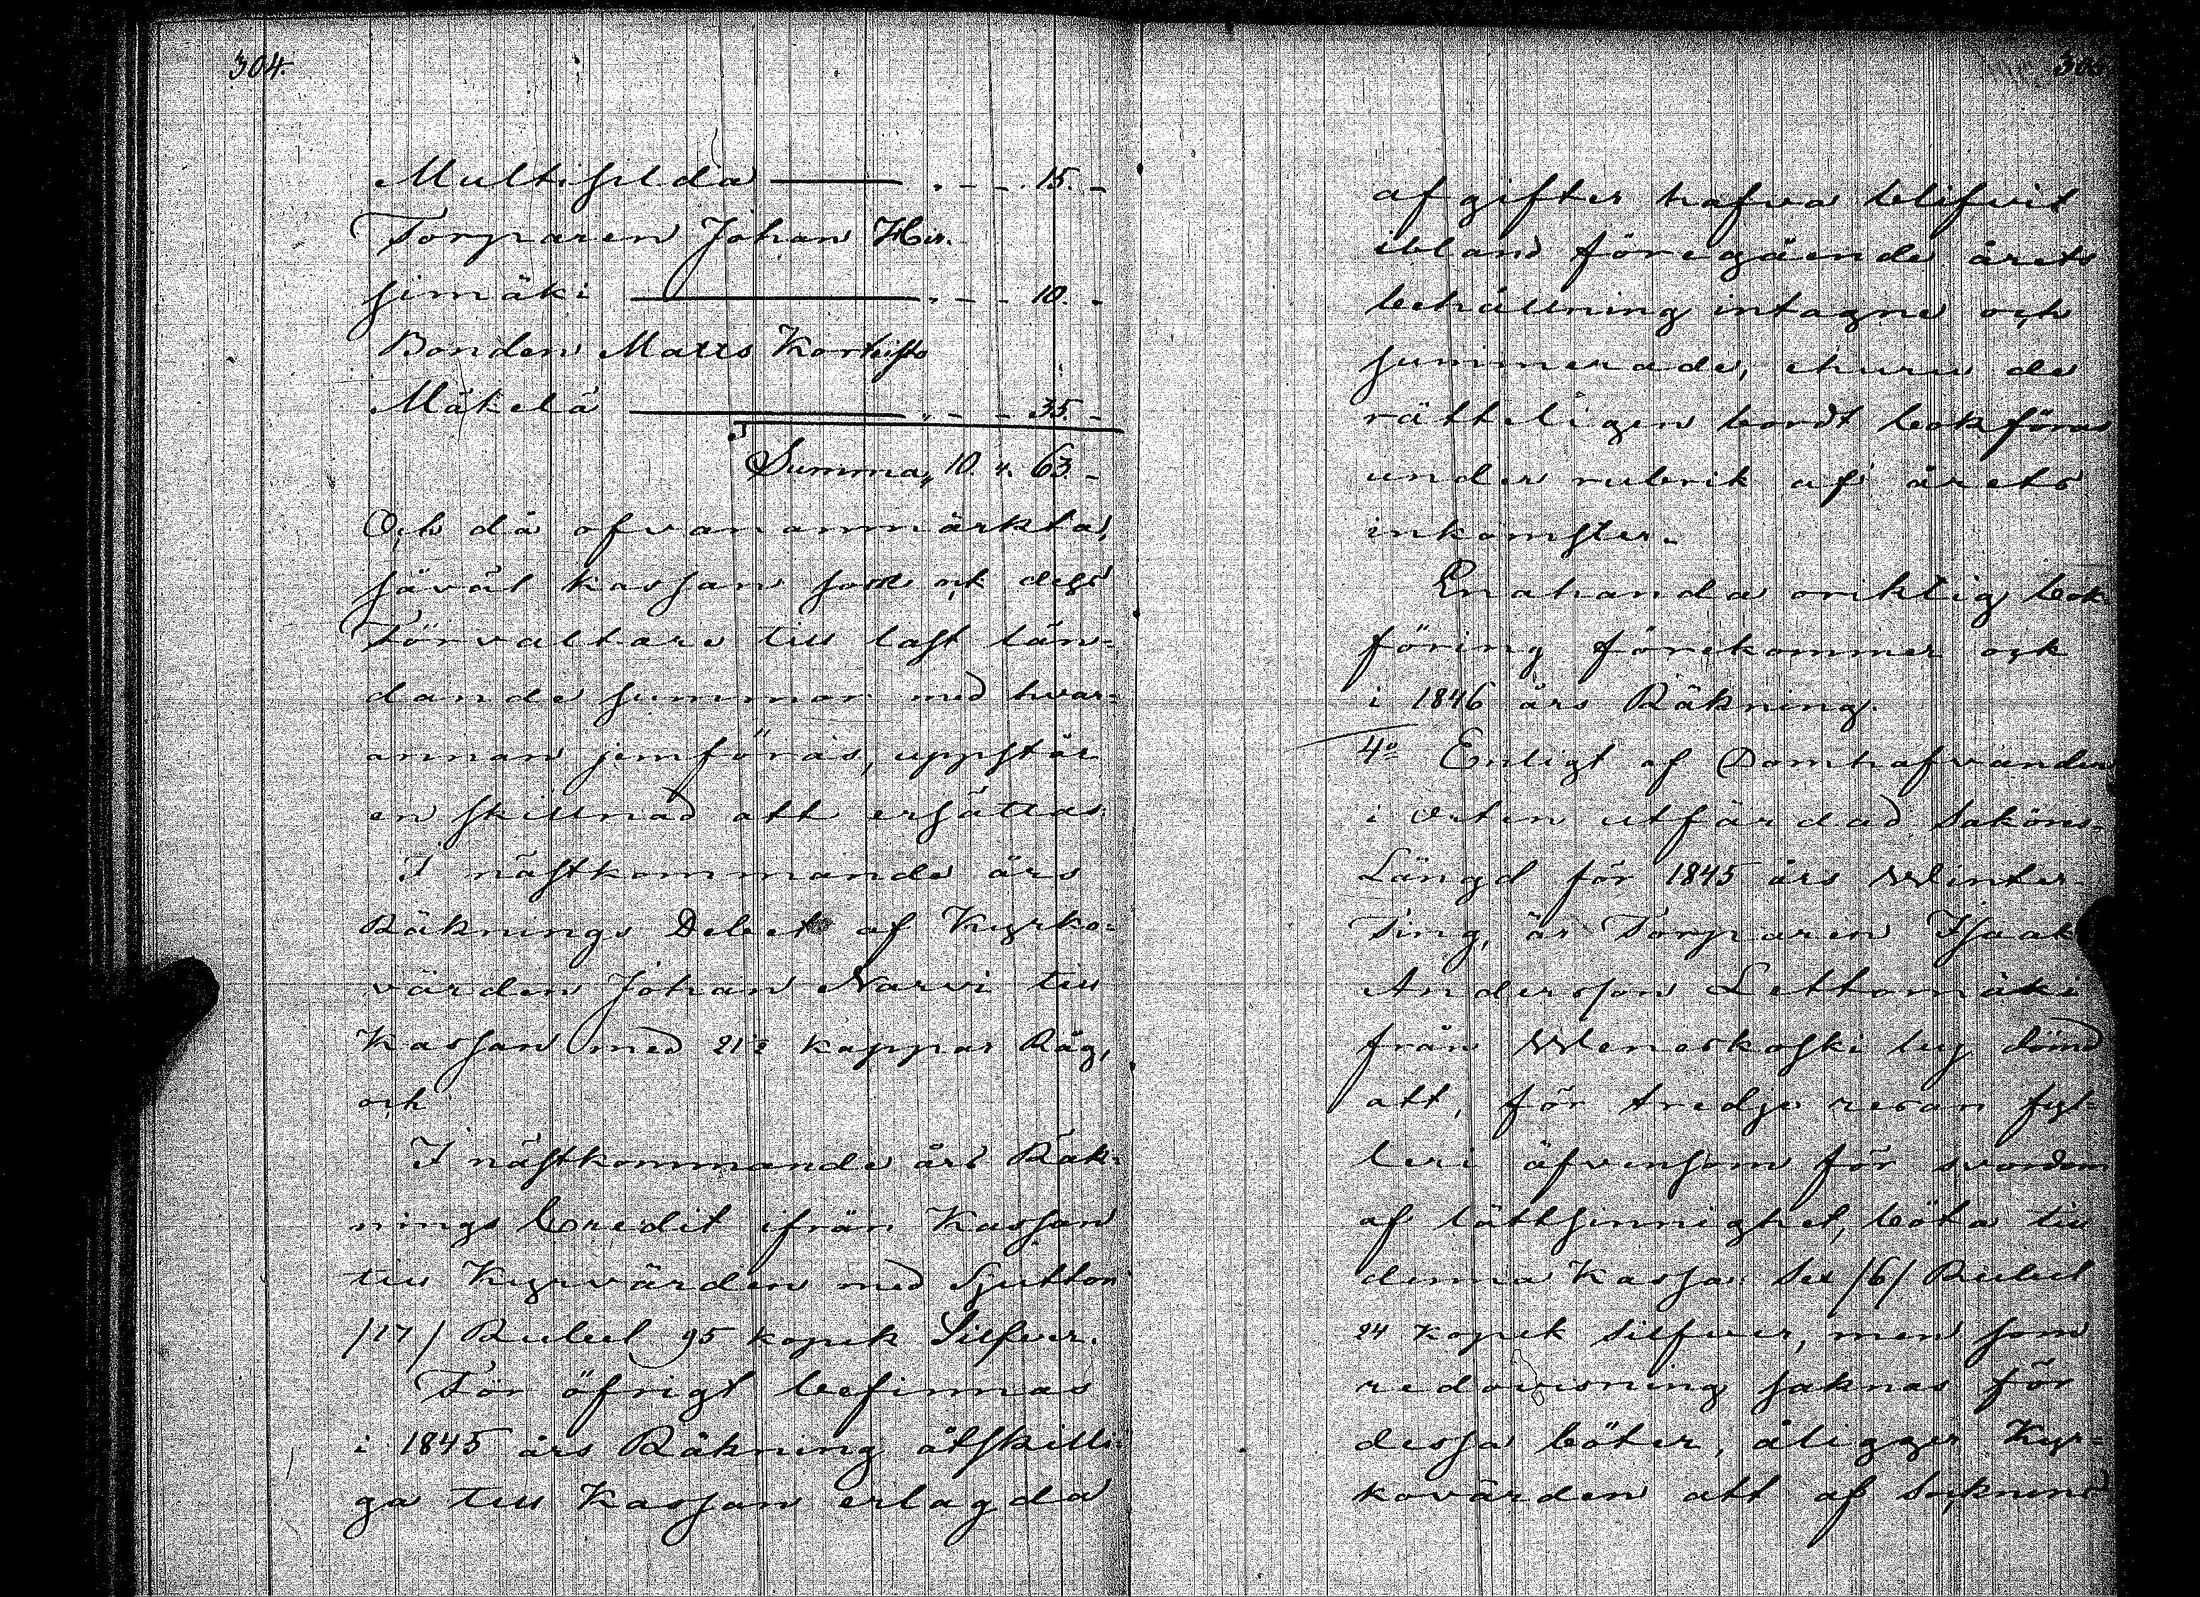 304.
Multisilda — . - - . 15. -
Torparen Johan Hir-
simäki — . - - 10. -
Bonden Matts Kortesto
Mäkelä — „ - - 35. -
Summa „ 10. „ 63. -
Och då ofvananmärkta,
såväl kassan som ock dess
Förvaltare till last län-
dande summor med hvar-
annan jemföras, uppstår
en skillnad att ersättas:
I nästkommande års
Räknings Debet af Kyrko-
värden Johan Narvi till
Kassan med 21 2 kappar Råg,
och
I nästkommande års Räk-
nings Credit ifrån Kassan
till Kyrvärden med Sjutton
/17/ Rubel 95 kopek Silfver.
För öfrigt befinnas
i 1845 års Räkning åtskilli-
ga till Kassan erlagda
305
afgifter hafva blifvit
ibland föregående årets
behållning intagne och
summerade, ehuru de
rätteligen bordt bokföras
under rubrik af årets
inkomster.
Enahanda oriktig bok-
föring förekommer ock
i 1846 års Räkning.
4o Enligt af Domhafvanden
i Orten utfärdad Saköres-
Längd för 1845 års Winter-
Ting, är Torparen Isaak
Andersson Lettomäki
från Weneskoski by dömd
att, för tredje resan fyl-
leri äfvensom för svordom
af lättsinnighet, böta till
denna Kassa Sex /6/ Rubel
24 kopek silfver, men som
redovisning saknas för
dessa böter, åligger Kyr-
kovärden att af Socknens